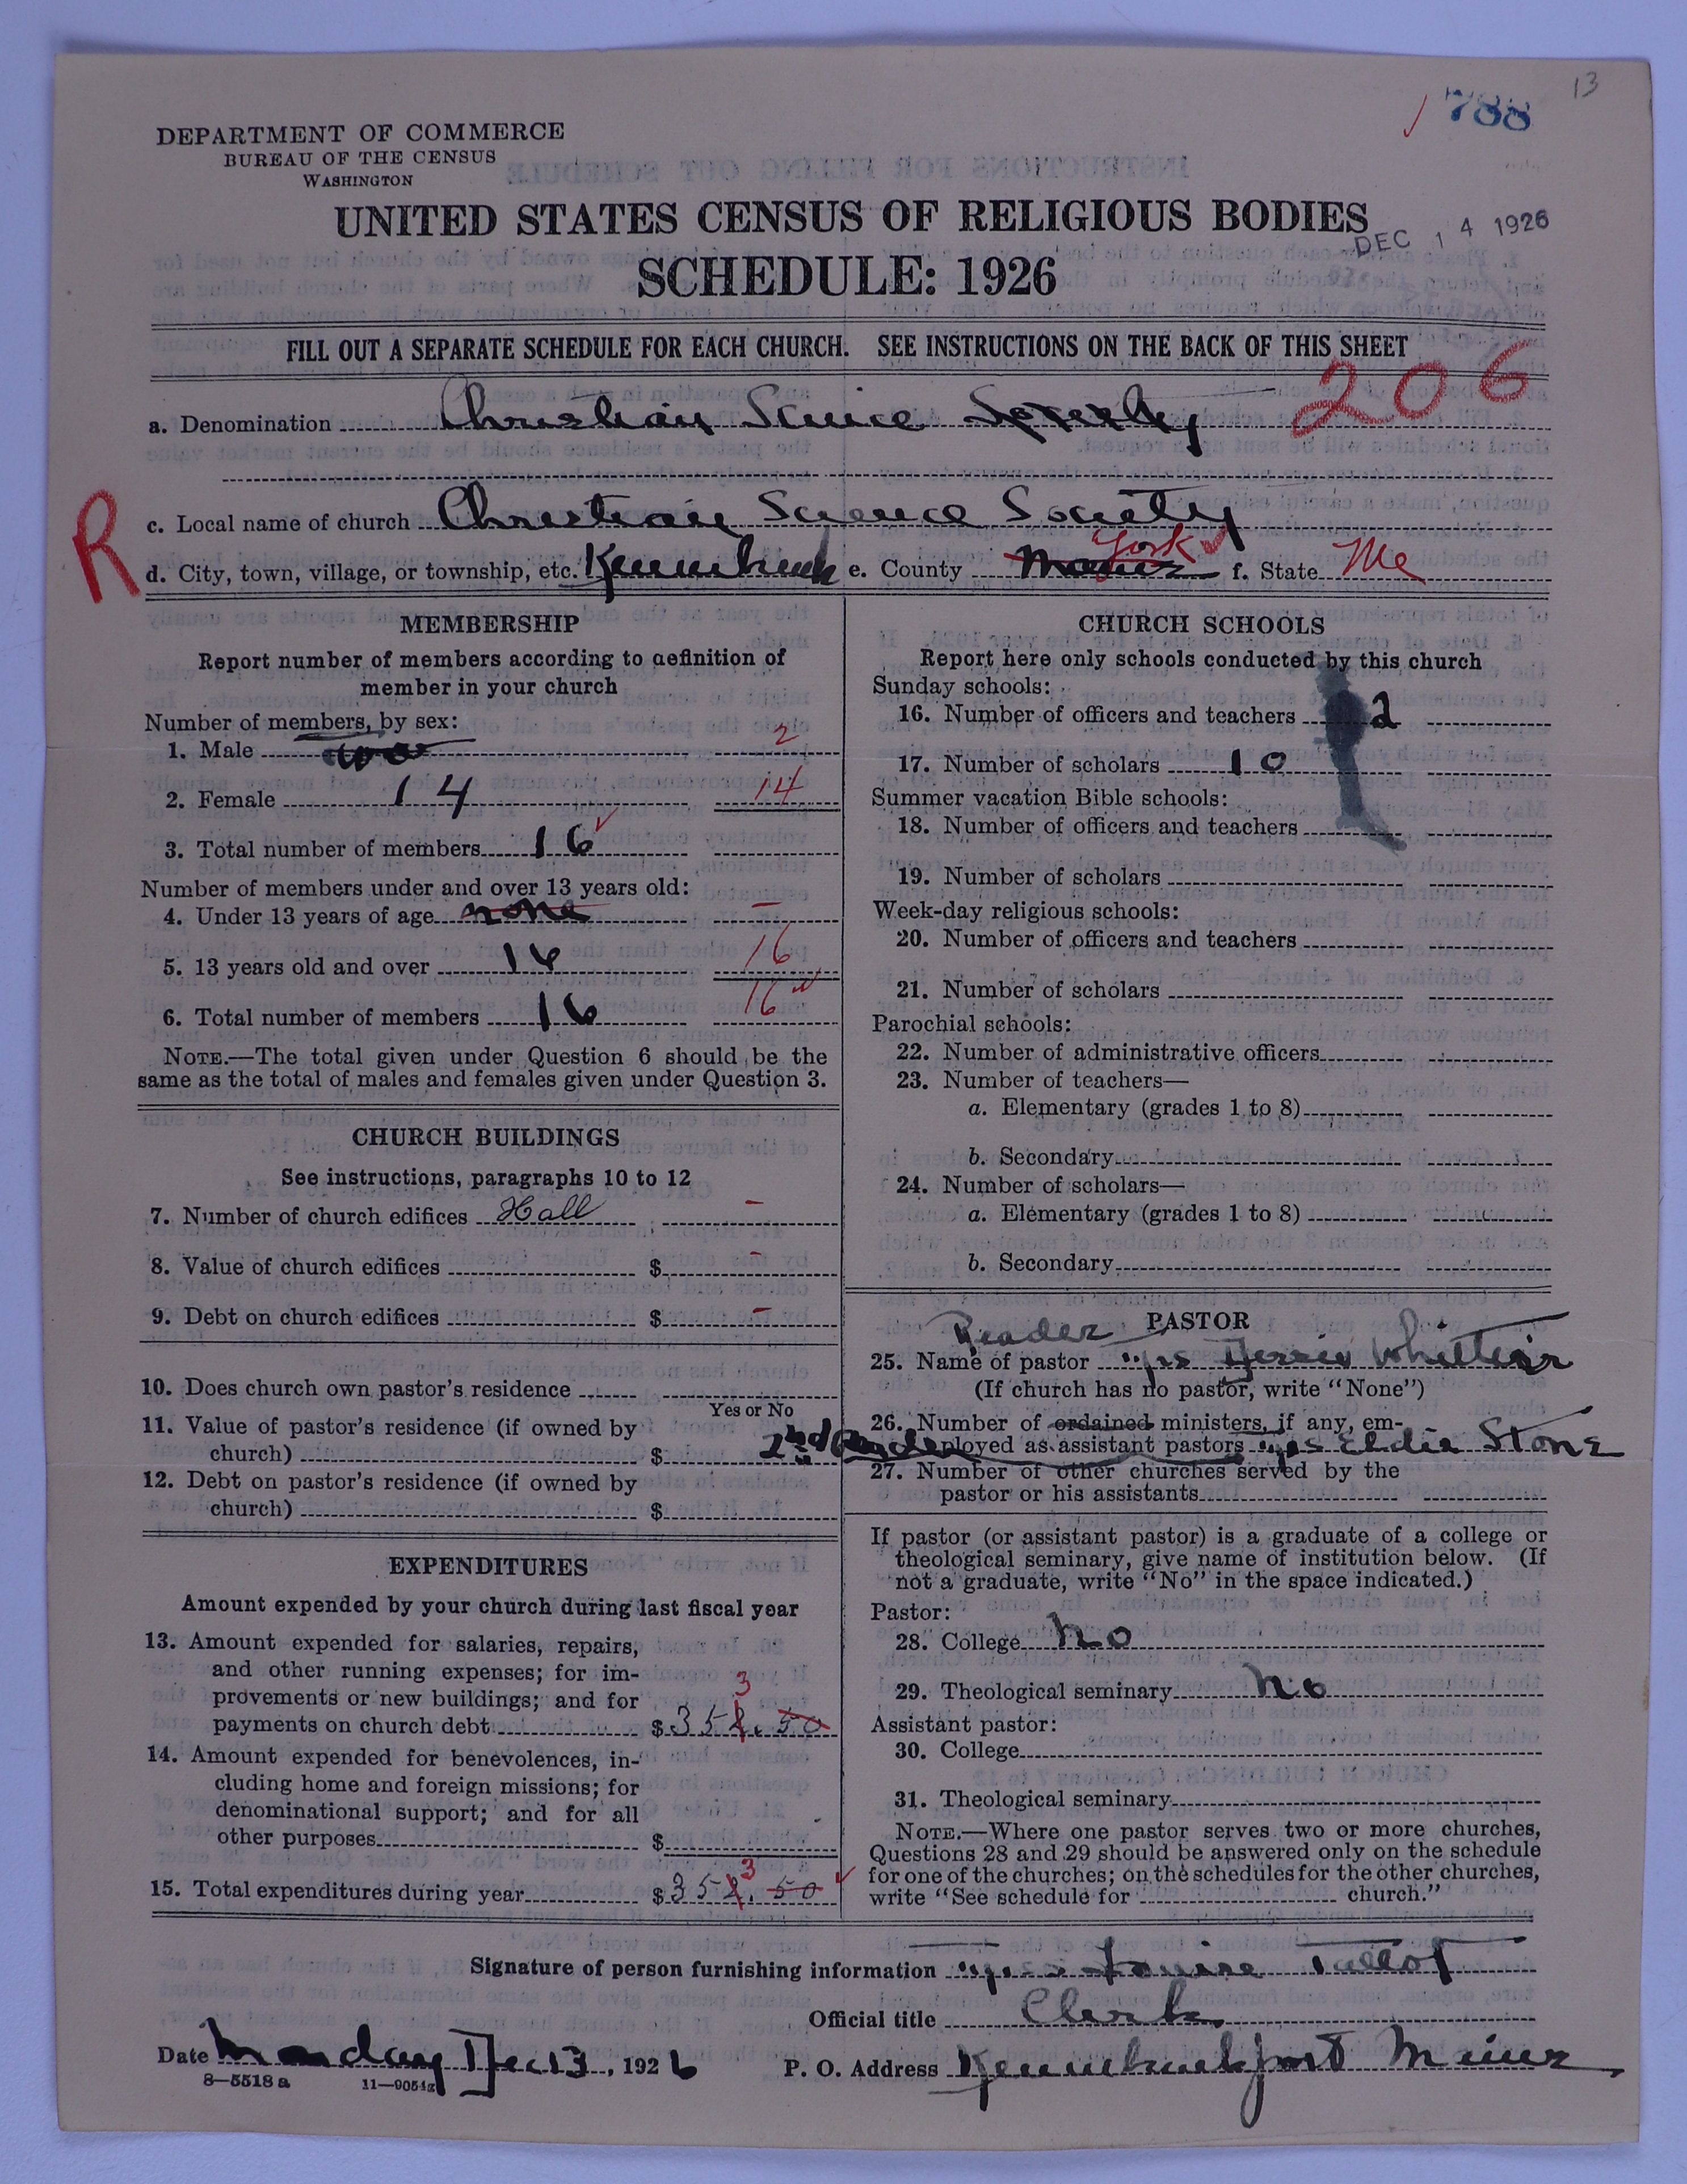 13
788
DEPARTMENT OF COMMERCE
BUREAU OF THE CENSUS
WASHINGTON
UNITED STATES CENSUS OF RELIGIOUS BODIES
DEC 14 1926
SCHEDULE: 1926
FILL OUT A SEPARATE SCHEDULE FOR EACH CHURCH. SEE INSTRUCTIONS ON THE BACK OF THIS SHEET
206
a. Denomination Christian Science Society
R
c. Local name of church Christian Science Society
d. City, town, village, or township, etc. Kennebunk e. County Maine York f. State Me
MEMBERSHIP
Report number of members according to definition of
member in your church
Number of members, by sex:
1. Male two 2
2. Female 14 14
3. Total number of members 16
Number of members under and over 13 years old:
4. Under 13 years of age none –
5. 13 years old and over 16 16
6. Total number of members 16 16
NOTE.—The total given under Question 6 should be the
same as the total of males and females given under Question 3.
CHURCH BUILDINGS
See instructions, paragraphs 10 to 12
7. Number of church edifices Hall –
8. Value of church edifices $ –
9. Debt on church edifices $ –
10. Does church own pastor's residence
Yes or No
11. Value of pastor's residence (if owned by
church) $
12. Debt on pastor's residence (if owned by
church) $
EXPENDITURES
Amount expended by your church during last fiscal year
13. Amount expended for salaries, repairs,
and other running expenses; for im-
provements or new buildings; and for
3
payments on church debt $352.50
14. Amount expended for benevolences, in-
cluding home and foreign missions; for
denominational support; and for all
other purposes $
3
15. Total expenditures during year $352.50
CHURCH SCHOOLS
Report here only schools conducted by this church
Sunday schools:
16. Number of officers and teachers 2
17. Number of scholars 10
Summer vacation Bible schools:
18. Number of officers and teachers
19. Number of scholars
Week-day religious schools:
20. Number of officers and teachers
21. Number of scholars
Parochial schools:
22. Number of administrative officers
23. Number of teachers—
a. Elementary (grades 1 to 8)
b. Secondary
24. Number of scholars—
a. Elementary (grades 1 to 8)
b. Secondary
Reader PASTOR
25. Name of pastor Mrs Whittier
(If church has no pastor, write "None")
26. Number of ordained ministers, if any, em-
2nd Reader ployed as assistant pastors Mrs Stone
27. Number of other churches served by the
pastor or his assistants
If pastor (or assistant pastor) is a graduate of a college or
theological seminary, give name of institution below. (If
not a graduate, write "No" in the space indicated.)
Pastor:
28. College No
29. Theological seminary No
Assistant pastor:
30. College
31. Theological seminary
NOTE.—Where one pastor serves two or more churches,
Questions 28 and 29 should be answered only on the schedule
for one of the churches; on the schedules for the other churches,
write "See schedule for church."
Signature of person furnishing information Louise
Official title Clerk
Date Monday Dec 13, 1926 P. O. Address Kennebunkport Maine
8—5518a 11—9054a